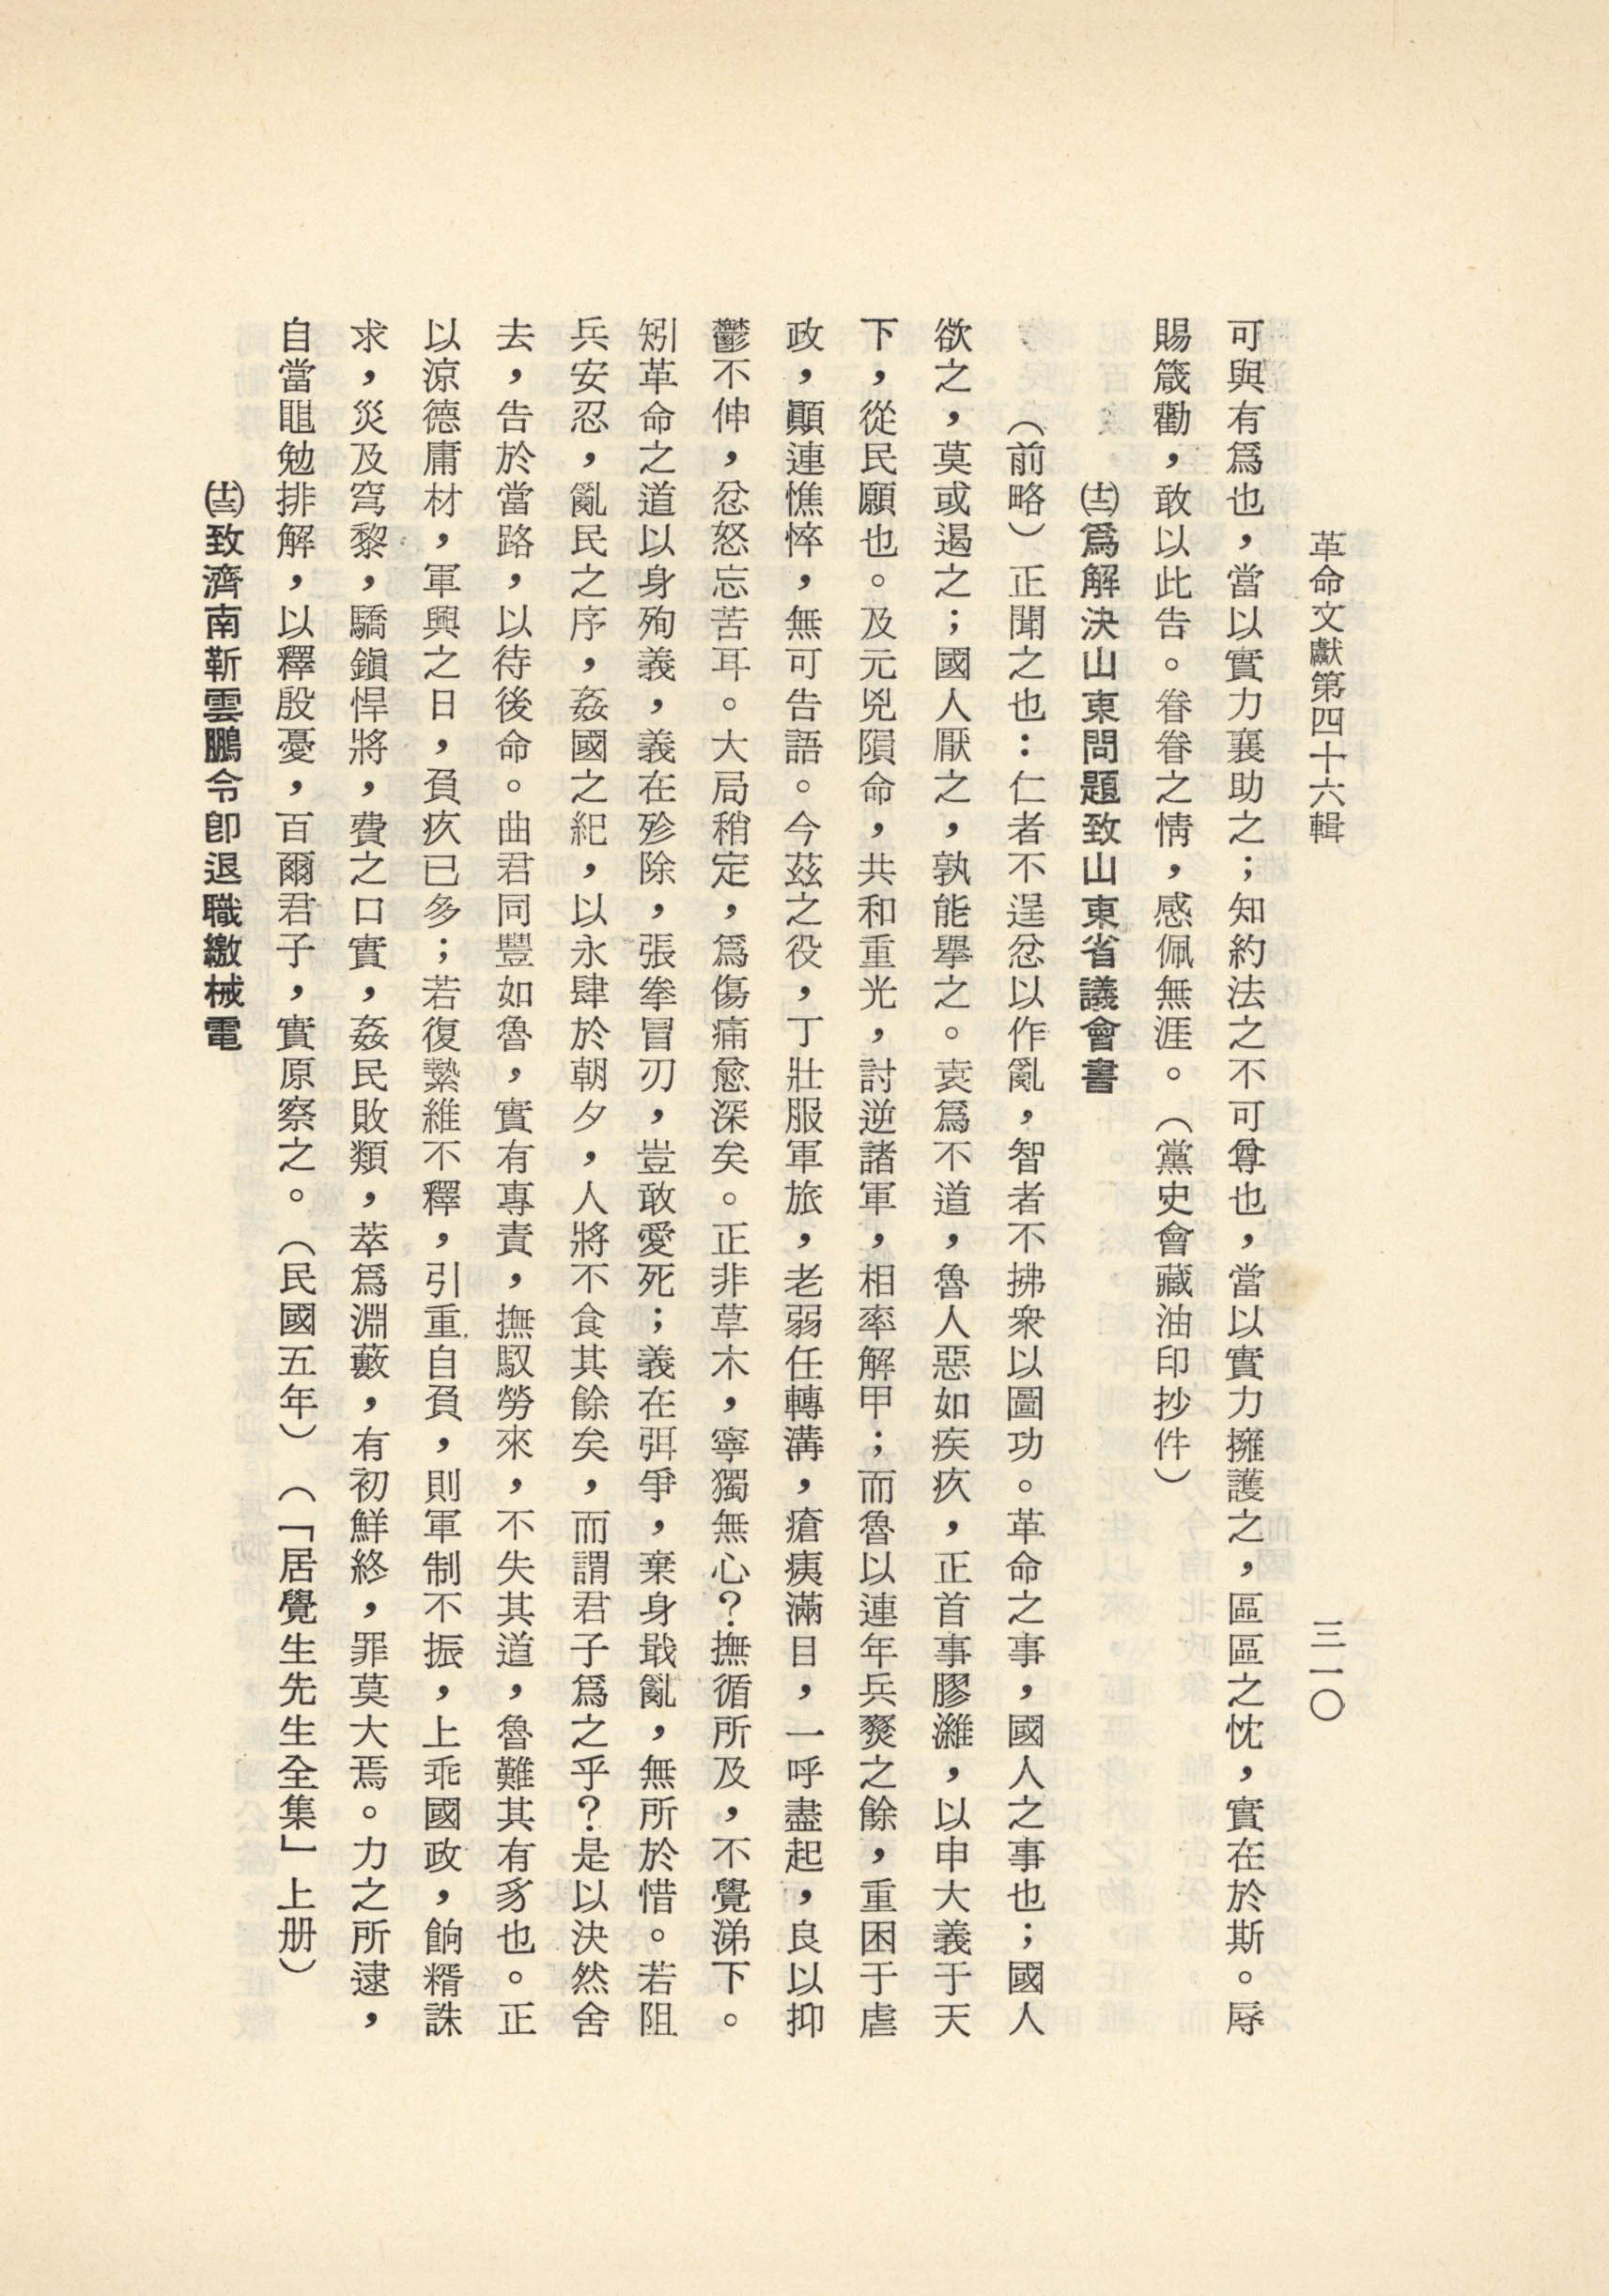 革命文獻第四十六輯
三一〇
可與有爲也，當以實力襄助之；知約法之不可尊也，當以實力擁護之，區區之忱，實在於斯。辱
賜箴勸，敢以此告。眷眷之情，感佩無涯。（黨史會藏油印抄件）
㈩爲解決山東問題致山東省議會書
（前略）正聞之也：仁者不逞忿以作亂，智者不拂衆以圖功。革命之事，國人之事也；國人
欲之，莫或遏之；國人厭之，孰能舉之。袁爲不道，魯人惡如疾疚，正首事膠濰，以申大義于天
下，從民願也。及元兇隕命，共和重光，討逆諸軍，相率解甲；而魯以連年兵燹之餘，重困于虐
政，顚連憔悴，無可告語。今茲之役，丁壯服軍旅，老弱任轉溝，瘡痍滿目，一呼盡起，良以抑
鬱不伸，忿怒忘苦耳。大局稍定，爲傷痛愈深矣。正非草木，寧獨無心？撫循所及，不覺涕下。
矧革命之道以身殉義，義在殄除，張拳冒刃，豈敢愛死；義在弭爭，棄身戢亂，無所於惜。若阻
兵安忍，亂民之序，姦國之紀，以永肆於朝夕，人將不食其餘矣，而謂君子爲之乎？是以決然舍
去，告於當路，以待後命。曲君同豐如魯，實有專責，撫馭勞來，不失其道，魯難其有豸也。正
以涼德庸材，軍興之日，負疚已多；若復縶維不釋，引重自負，則軍制不振，上乖國政，餉糈誅
求，災及窮黎，驕鎭悍將，費之口實，姦民敗類，萃爲淵藪，有初鮮終，罪莫大焉。力之所逮，
自當黽勉排解，以釋殷憂，百爾君子，實原察之。（民國五年）（「居覺生先生全集」上册）
致濟南靳雲鵬令卽退職繳械電